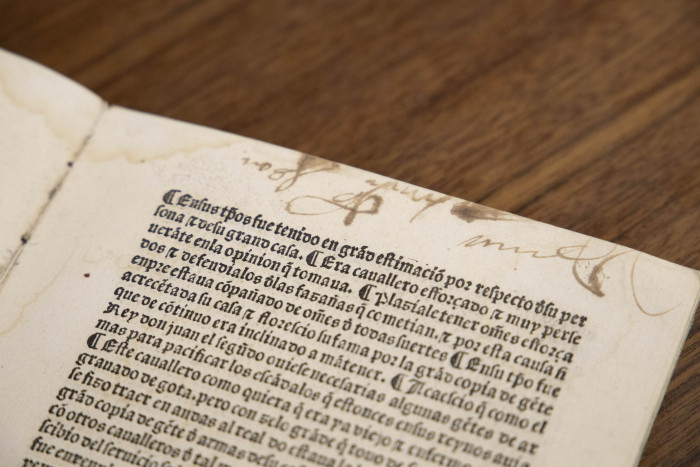 ⸿ Ensus tp̃os fue tenido en grãd estimaciõ por respecto d̃su per
sona ⁊ desu grand casa. ⸿ Era cauallero esforçado ⁊ muy perse
uerãte enla opinion q̃ tomaua. ⸿ Plaziale tener om̃es esforça
dos ⁊ defendialos d̃las fazañas q̃ cometian, ⁊ por esta causa si
enpre estaua cõpañado de om̃es d̃ todas suertes ⸿ Ensu tp̃o fue
acrecẽtada su casa ⁊ florescio su fama por la grãd copia de gẽte
que de cõtinuo era inclinado a mãtener. ⸿ Acaescio q̃ como el
Rey don juan el segũdo ouiese necessarias algunas gẽtes de ar
mas para pacificar los escãdalos q̃ estonces ensus reynos auia
⸿ Este cauallero como quiera q̃ era ya viejo ⁊ enfermo
grauado de gota, pero con zelo grãde q̃ touo de
se fizo traer en andas al real do estaua
grãd copia de gẽte d̃ armas desu
cõ otros caualleros d̃ tal
scibio del seruicio
fue